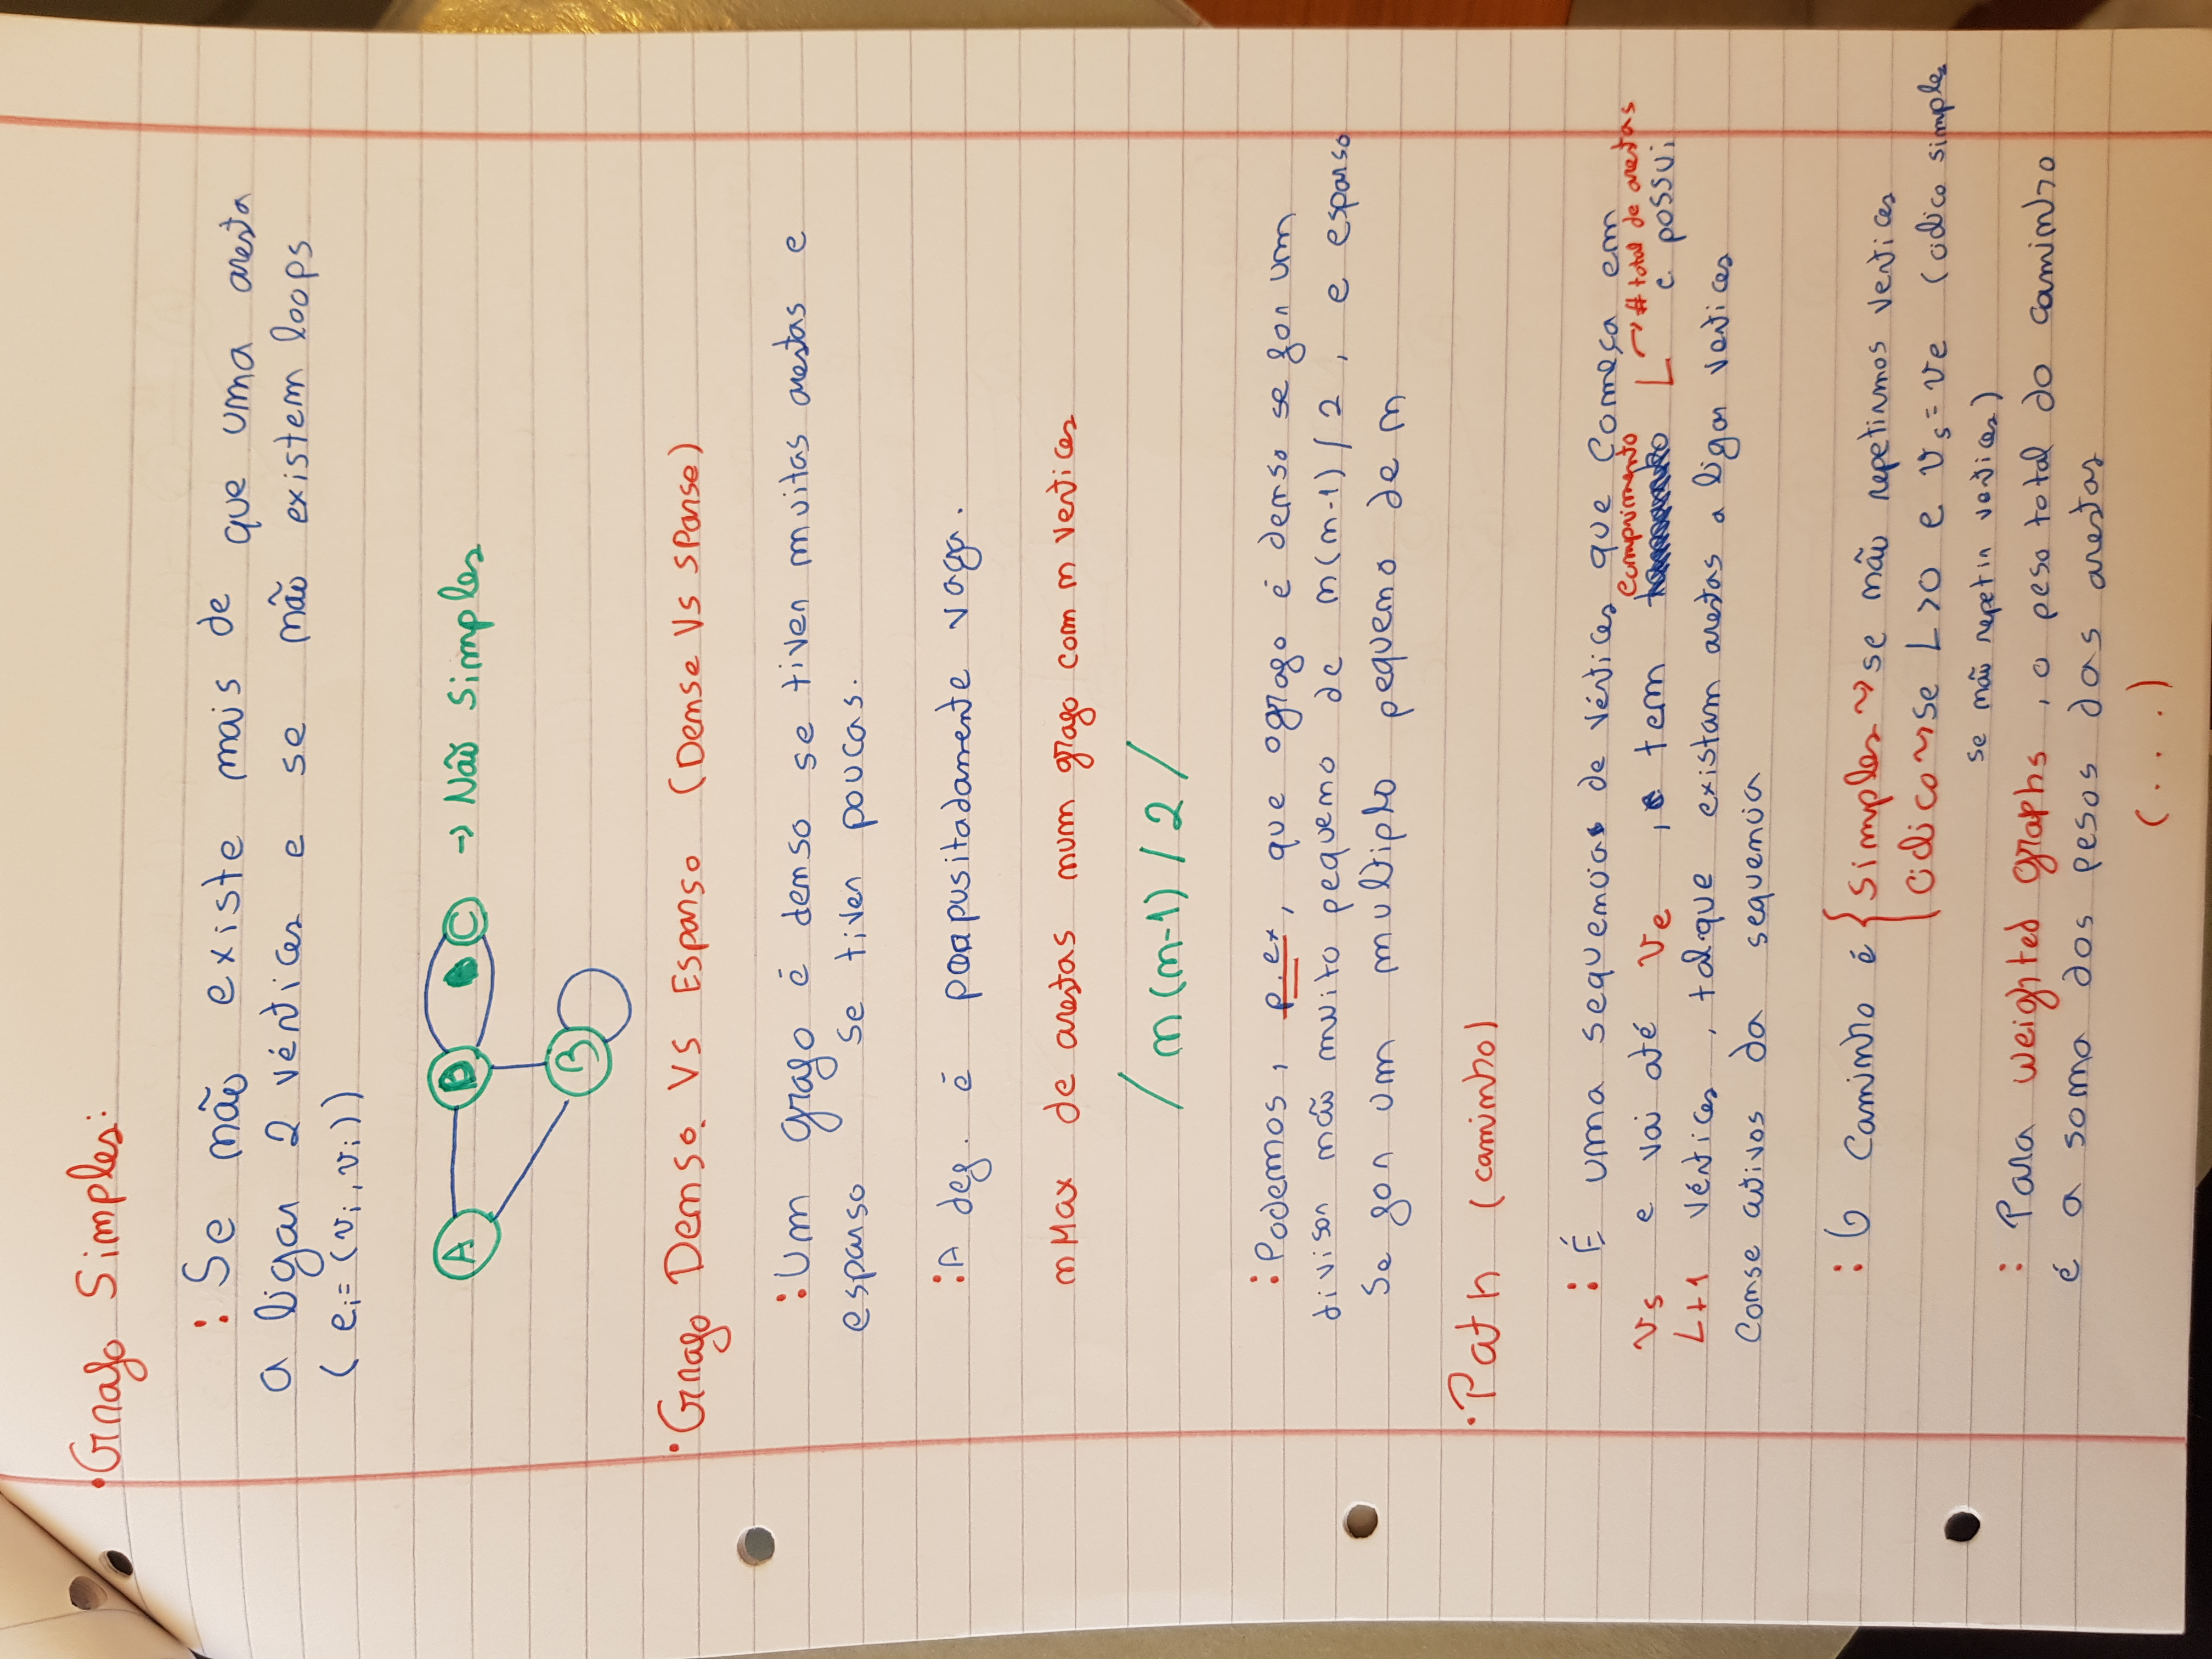 • Grafo Simples:
: Se não existe mais de que uma aresta
a ligar 2 vértices e se não existem loops
( ei = (vi, vi))
A D C → Não simples
B
• Grafo Denso. VS Esparso (Dense Vs SParse)
: Um grafo é denso se tiver muitas arestas e
esparso se tiver poucas.
: A def. é porpusitadamente vaga.
nMax de arestas num grafo com n vertices
/ n(n-1) / 2 /
: Podemos, p.ex, que o grafo é denso se for um
divisor não muito pequeno de n(n-1)/2, e esparso
se for um multiplo pequeno de n
• Path (caminho)
: É uma sequencia de vértices que começa em
vs e vai até ve, e tem comprimento L → # total de arestas e possui
L+1 vértices, tal que existam arestas a ligar vertices
consecutivos da sequencia
: O caminho é { simples ~> se não repetirmos vertices
ciclico ~> se L>0 e vs = ve (ciclico simples
se não repetir vertices)
: Para weighted graphs, o peso total do caminho
é a soma dos pesos das arestas
(...)